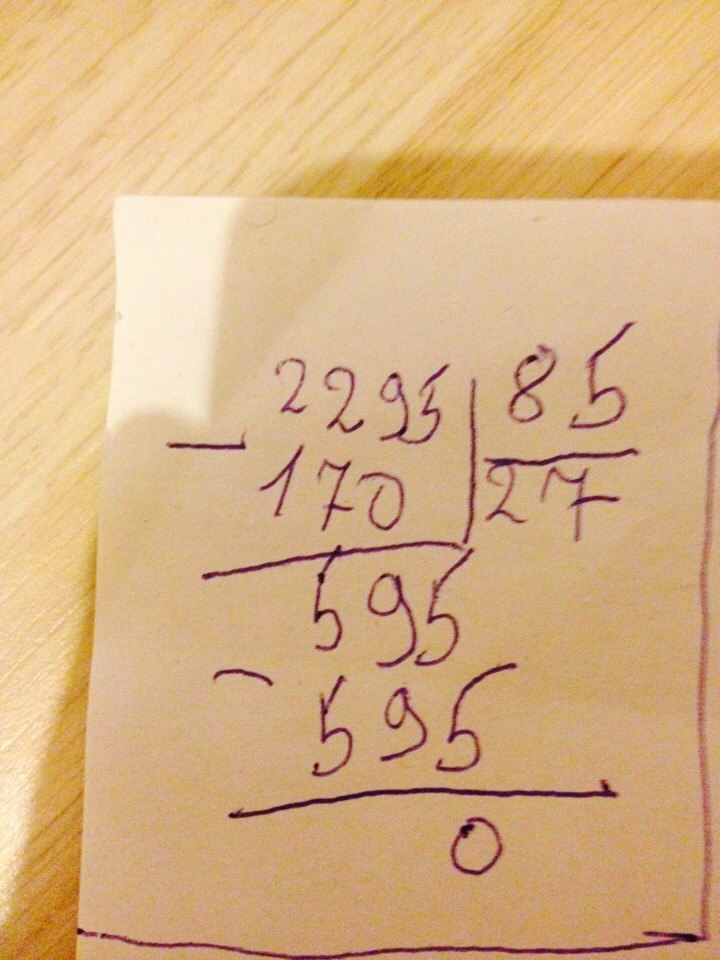 2295 85
- 170 27
595
- 595
0